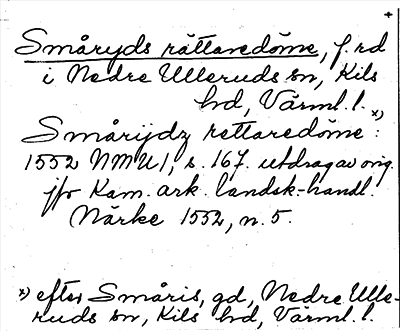 +
Småryds rättaredöme, f. rd
i Nedre Ulleruds sn, Kils
hd, Värml. l.
Smårijdz rettaredöme x):
1552 NMU 1, s. 167. utdrag av orig.
jfr Kam. ark. landsk.-handl.
Närke 1552, n. 5.
x) efter Småris, gd, Nedre Ulle-
ruds sn, Kils hd, Värml. l.